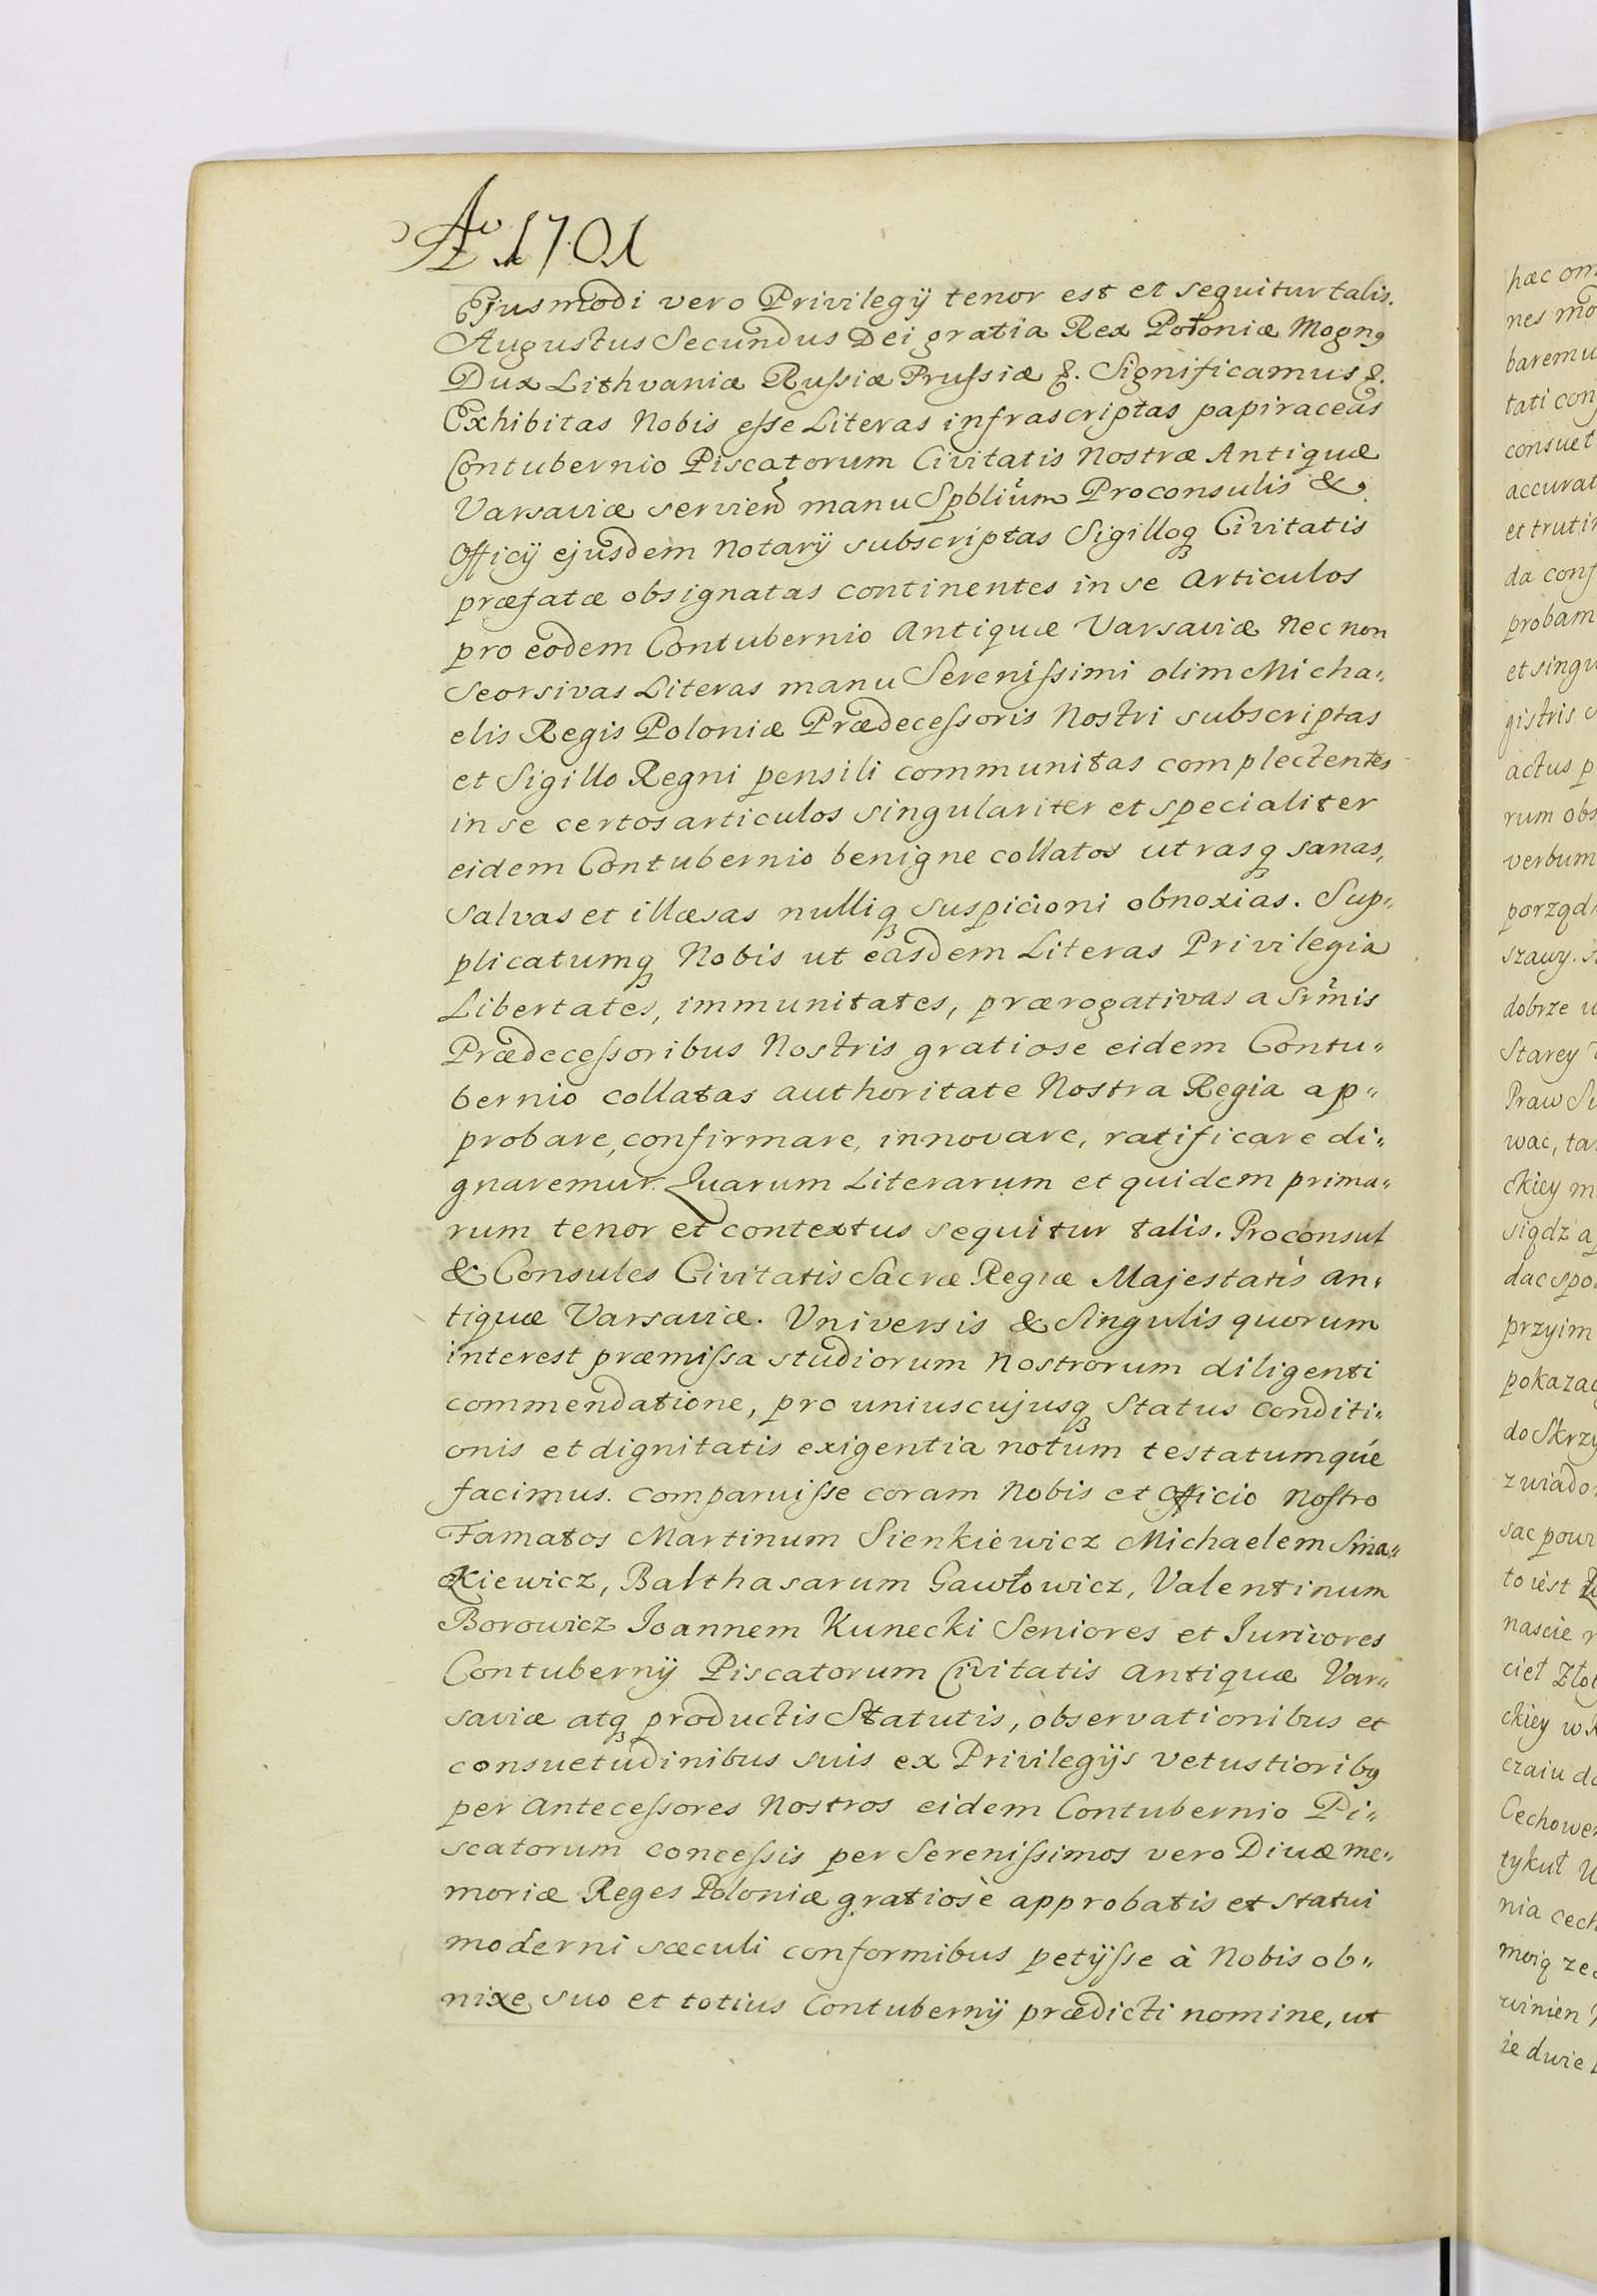 Ao 1701
Ejusmodi vero Privilegÿ tenor est et sequitur talis.
Augustus Secundus Dei gratia Rex Poloniæ Magnꝯ
Dux Lithvaniæ Rußiæ Prußiæ &. Significamus &.
Exhibitas Nobis eße Literas infrascriptas papiraceas
Contubernio Piscatorum Civitatis Nostræ Antiquæ
Varsaviæ servien̄ manu Spblium̄ Proconsulis &
Officÿ ejusdem Notarÿ subscriptas Sigilloqꝫ Civitatis
præfatæ obsignatas continentes in se Articulos
pro eodem Contubernio Antiquæ Varsaviæ Nec non
Seorsivas Literas manu Serenißimi olim Micha„
elis Regis Poloniæ Prædeceßoris Nostri subscriptas
et Sigillo Regni pensili communitas complectentes
in se certos articulos singulariter et specialiter
eidem Contubernio benigne collatos utrasqꝫ sanas,
Salvas et illæsas nulliqꝫ suspicioni obnoxias. Sup„
plicatumqꝫ Nobis ut easdem Literas Privilegia
Libertates, immunitates, prærogativas a Srm̄is
Prædeceßoribus Nostris gratiose eidem Contu„
bernio collatas authoritate Nostra Regia ap„
probare, confirmare, innovare, ratificare di„
gnaremur. Quarum Literarum et quidem prima„
rum tenor et contextus sequitur talis. Proconsul
& Consules Civitatis Sacræ Regiæ Majestatis an„
tiquæ Varsaviæ. Vniversis & Singulis quorum
interest præmißa studiorum Nostrorum diligenti
commendatione, pro uniuscujusqꝫ Status Conditi„
onis et dignitatis exigentia notum testatumqúe
facimus. Comparuiße coram Nobis et Officio Nostro
Famatos Martinum Sienkiewicz Michaelem Sma„
kiewicz, Balthasarum Gawłowicz, Valentinum
Borowicz Joannem Kunecki Seniores et Juniores
Contubernÿ Piscatorum Civitatis Antiquæ Var„
saviæ atqꝫ productis Statutis, observationibus et
consuetudinibus suis ex Privilegÿs vetustioribꝯ
per Anteceßores Nostros eidem Contubernio Pi„
scatorum conceßis per Sereniẞimos vero Divæ me„
moriæ Reges Poloniæ gratiosè approbatis et statui
moderni sæculi conformibus petÿße à Nobis ob„
nixe, suo et totius Contubernÿ prædicti nomine, ut
hæc om
nes mo
baremu
tati con
consuet
accurat
et trutin
da conf
probam
et singu
gistris
actus p
rum obs
verbum
porządn
szawy.
dobrze
Starey
Praw
wac, ta
ckiey m
siądz a
dac spo
przyim
pokazac
do Skrzy
zwiado
sac powi
to iest
nascie
ciel Złot
ckiey w
czaiu do
Cechowe
tykuł
nia cech
moią ze
winien
ie dwie